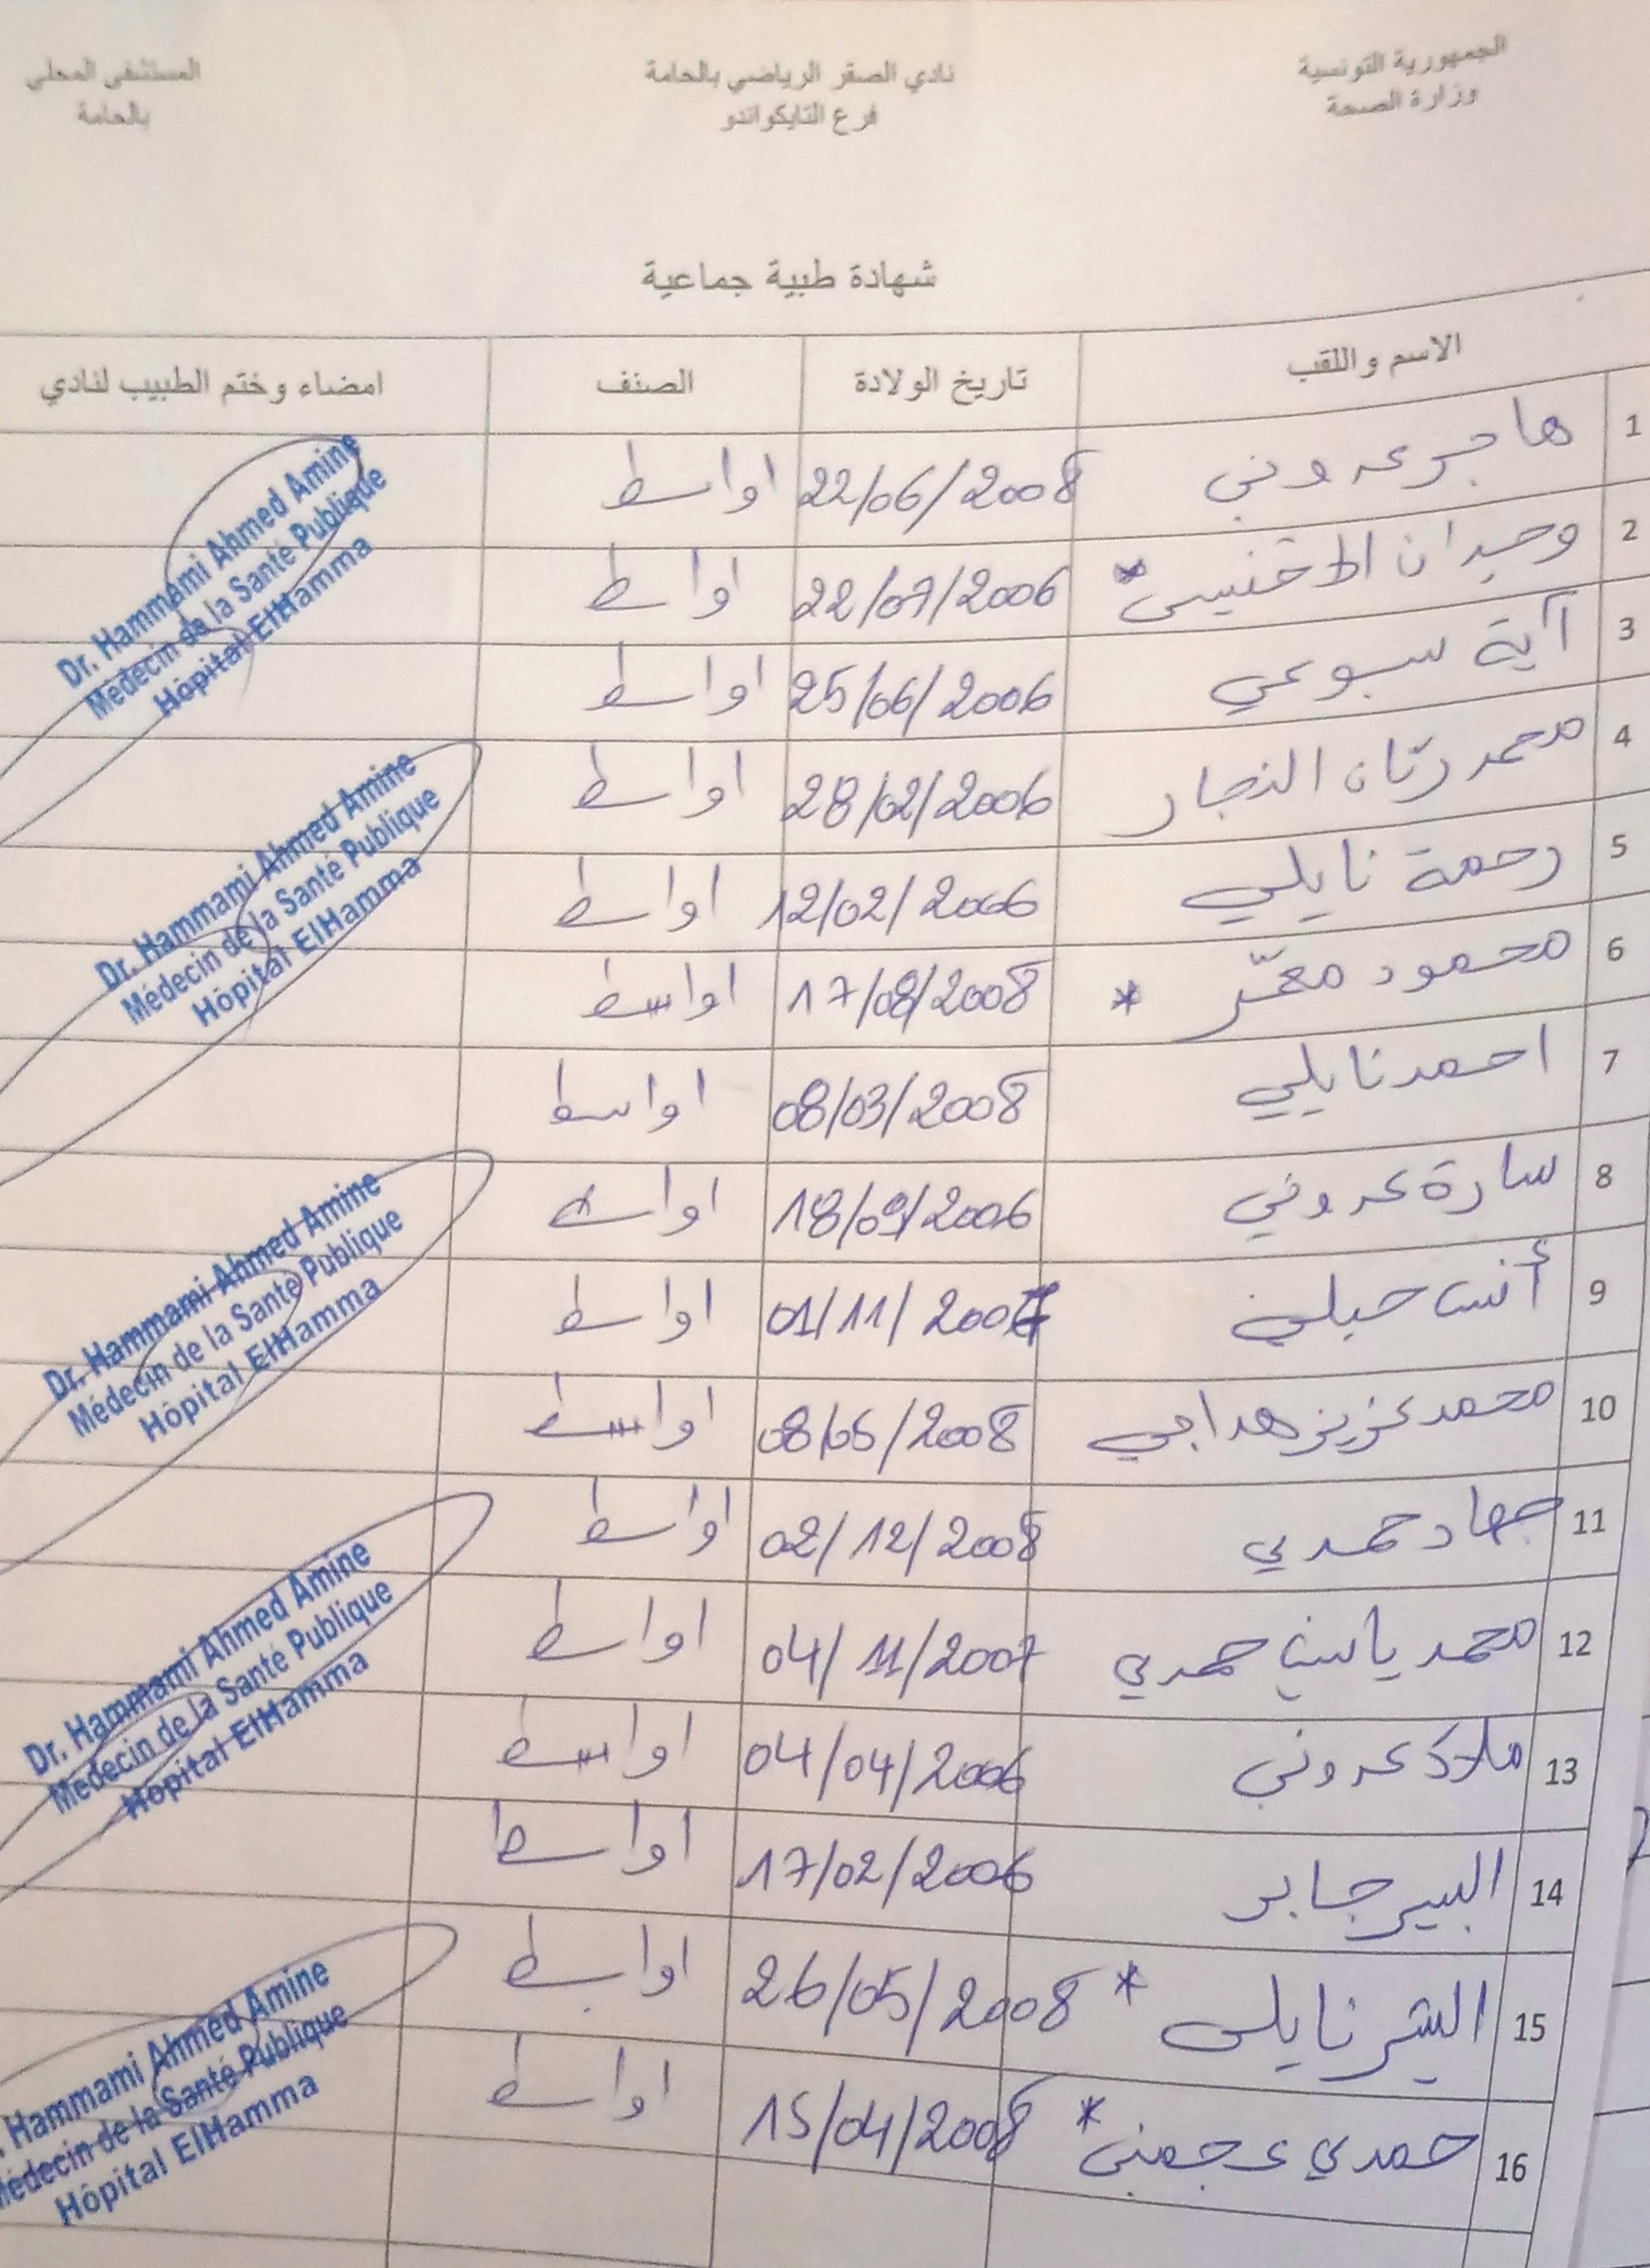 الجمهورية التونسية
وزارة الصحة
نادي الصقر الرياضي بالحامة
فرع التايكواندو
المستشفى المحلي
بالحامة
شهادة طبية جماعية
الاسم واللقب تاريخ الولادة الصنف امضاء وختم الطبيب لنادي
1 هاجر عروني 22/06/2008 اواسط
2 * 22/07/2006 اواسط
3 آية سبوعي 25/06/2006 اواسط
4 محمد ريّان النجار 28/02/2006 اواسط
5 رحمة نايلي 12/02/2006 اواسط
6 محمود معمّر * 17/08/2008 اواسط
7 احمد نايلي 08/03/2008 اواسط
8 سارة عروني 18/09/2006 اواسط
9 أنس 01/11/2007 اواسط
10 محمد عزيز هداجي 08/05/2008 اواسط
11 جهاد حمدي 02/12/2008 اواسط
12 محمد ياسين حمدي 04/11/2007 اواسط
13 ملاك عروني 04/04/2006 اواسط
14 جابر 17/02/2006 اواسط
15 نايلي * 26/05/2008 اواسط
16 حمدي عجمني * 15/04/2008 اواسط
Dr. Hammami Ahmed Amine
Médecin de la Santé Publique
Hôpital ElHamma
Dr. Hammami Ahmed Amine
Médecin de la Santé Publique
Hôpital ElHamma
Dr. Hammami Ahmed Amine
Médecin de la Santé Publique
Hôpital ElHamma
Dr. Hammami Ahmed Amine
Médecin de la Santé Publique
Hôpital ElHamma
. Hammami Ahmed Amine
Médecin de la Santé Publique
Hôpital ElHamma